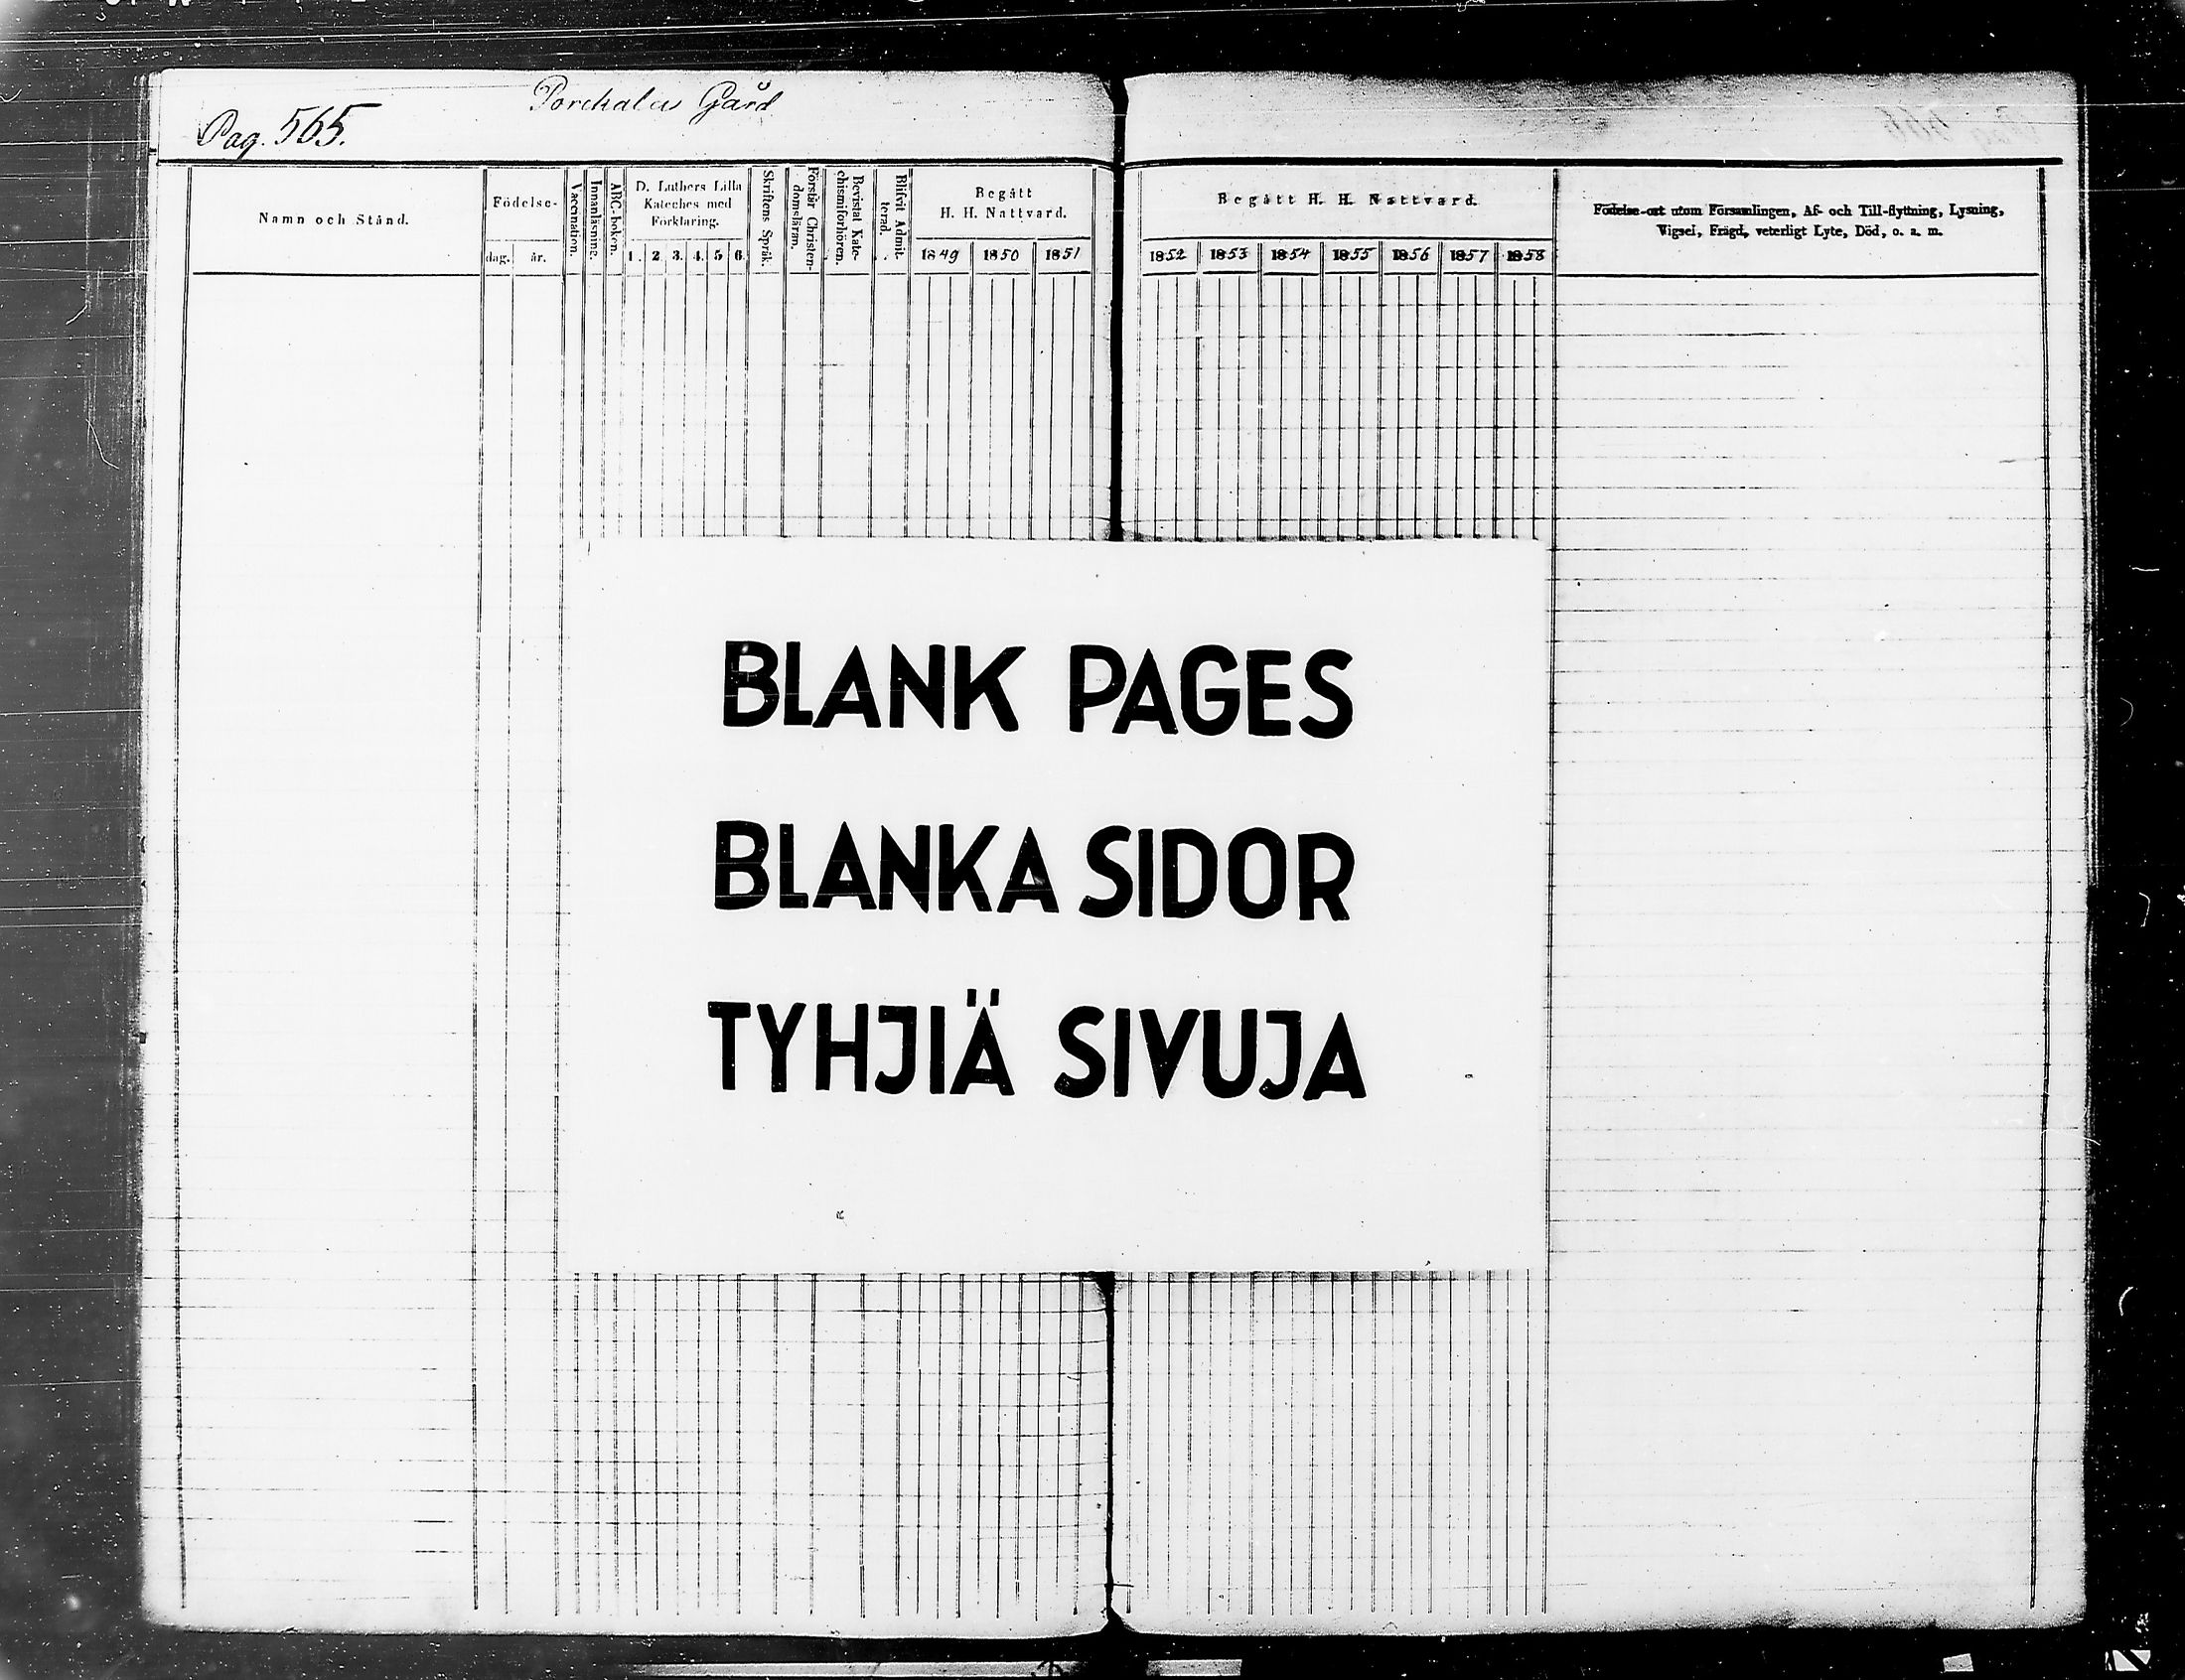 Porckala Gård
Pag. 565.
Namn och Stånd.
Födelse-
dag.
år.
Vaccination.
Innanläsning.
ABC-boken.
D. Luthers Lilla
Kateches med
Förklaring.
1. 2. 3. 4. 5 6
Skriftens Språk.
Förstår Christen-
domsläran.
Bevistat Kate-
chismiförhören.
Blifvit Admit-
terad.
Begått
H. H. Nattvard.
1849 1850 1851
Begått H. H. Nattvard.
1852 1853 1854 1855 1856 1857 1858
Födelse-ort utom Församlingen, Af- och Till-flyttning, Lysning,
Vigsel, Frägd, veterligt Lyte, Död, o. a. m.
BLANK PAGES
BLANKA SIDOR
TYHJIÄ SIVUJA